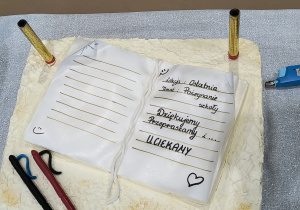 Lekcja: Ostatnia
Temat: Pożegnanie
szkoły
Dziękujemy
Przepraszamy i ...
UCIEKAMY